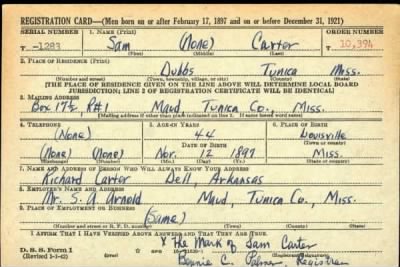 REGISTRATION CARD—(Men born on or after February 17, 1897 and on or before December 31, 1921)
SERIAL NUMBER 1. NAME (Print) ORDER NUMBER
T -1283 Sam (None) Carter 10,394
(First) (Middle) (Last)
2. PLACE OF RESIDENCE (Print)
Dubbs Tunica Miss.
(Number and street) (Town, township, village, or city) (County) (State)
[THE PLACE OF RESIDENCE GIVEN ON THE LINE ABOVE WILL DETERMINE LOCAL BOARD
JURISDICTION; LINE 2 OF REGISTRATION CERTIFICATE WILL BE IDENTICAL]
3. MAILING ADDRESS
Box 178, Rt#1 Maud, Tunica Co., Miss.
[Mailing address if other than place indicated on line 2. If same insert word same]
4. TELEPHONE 5. AGE IN YEARS 6. PLACE OF BIRTH
(None) 44 Louisville
DATE OF BIRTH (Town or county)
(None) (None) Nov. 12 1897 Miss.
(Exchange) (Number) (Mo.) (Day) (Yr.) (State or country)
7. NAME AND ADDRESS OF PERSON WHO WILL ALWAYS KNOW YOUR ADDRESS
Richard Carter Dell, Arkansas
8. EMPLOYER'S NAME AND ADDRESS
Mr. S. A. Arnold Maud, Tunica Co., Miss.
9. PLACE OF EMPLOYMENT OR BUSINESS
(Same)
(Number and street or R. F. D. number) (Town) (County) (State)
I AFFIRM THAT I HAVE VERIFIED ABOVE ANSWERS AND THAT THEY ARE TRUE.
X The Mark of Sam Carter
D. S. S. Form 1
(Revised 1-1-42) C. Palmer, Registrar